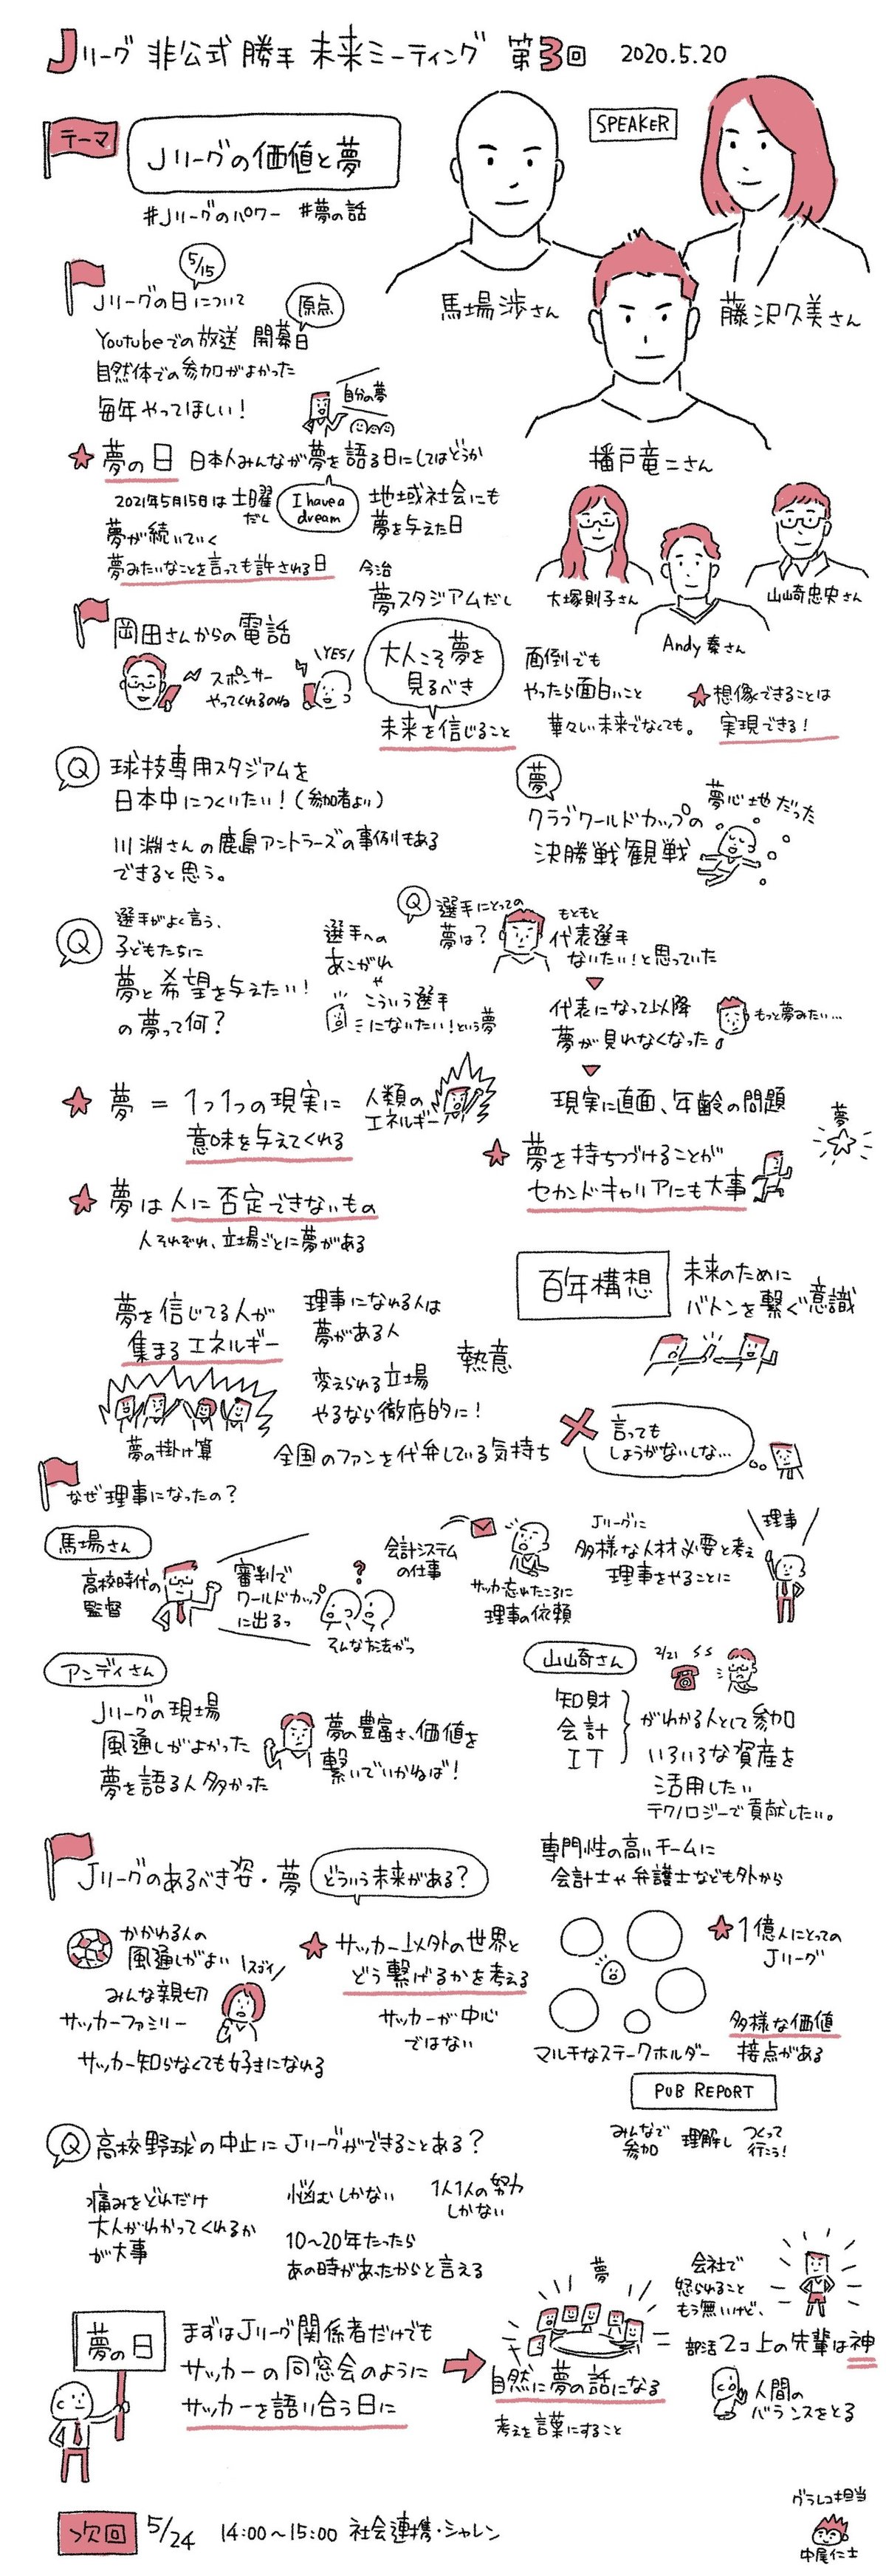 Jリーグ 非公式 勝手 未来ミーティング 第3回 2020.5.20
テーマ
Jリーグの価値と夢
#Jリーグのパワー #夢の話
SPEAKER
馬場渉さん
藤沢久美さん
播戸竜二さん
大塚則子さん
Andy秦さん
山崎忠央さん
5/15
Jリーグの日について
Youtubeでの放送 開幕日
原点
自然体での参加がよかった
毎年やってほしい!
自分の夢
夢の日 日本人みんなが夢を語る日にしてはどうか
2021年5月15日は土曜だし
I have a
dream
地域社会にも
夢を与えた日
夢が続いていく
夢みたいなことを言っても許される日
今治
夢スタジアムだし
岡田さんからの電話
スポンサー
やってくれるのね
YES
大人こそ夢を
見るべき
未来を信じること
面倒でも
やったら面白いこと
華々しい未来でなくても。
想像できることは
実現できる!
Q
球技専用スタジアムを
日本中につくりたい!(参加者より)
川淵さんの鹿島アントラーズの事例もある
できると思う。
夢
クラブワールドカップの
決勝戦観戦
夢心地だった
Q
選手がよく言う、
子どもたちに
夢と希望を与えたい!
の夢って何?
選手への
あこがれ
こういう選手
になりたい!という夢
Q
選手にとっての
夢は?
もともと
代表選手
なりたい!と思っていた
代表になって以降
夢が見れなくなった
もっと夢みたい…
現実に直面、年齢の問題
夢 = 1つ1つの現実に
意味を与えてくれる
人類の
エネルギー
夢
夢を持ちつづけることが
セカンドキャリアにも大事
夢は人に否定できないもの
人それぞれ、立場ごとに夢がある
百年構想
未来のために
バトンを繋ぐ意識
夢を信じてる人が
集まるエネルギー
夢の掛け算
理事になれる人は
夢がある人
変えられる立場
やるなら徹底的に!
熱意
全国のファンを代弁している気持ち
言っても
しょうがないしな…
なぜ理事になったの?
馬場さん
高校時代の
監督
審判で
ワールドカップ
に出るっ
?
そんな方法がっ
会計システム
の仕事
サッカー忘れたころに
理事の依頼
Jリーグに
多様な人材必要と考え
理事をやることに
理事
アンディさん
Jリーグの現場
風通しがよかった
夢を語る人多かった
夢の豊富さ、価値を
繋いでいかねば!
山崎さん
2/21
知財
会計
IT
がわかる人として参加
いろいろな資産を
活用したい
テクノロジーで貢献したい。
専門性の高いチームに
会計士や弁護士なども外から
Jリーグのあるべき姿・夢
どういう未来がある?
かかわる人の
風通しがよい
スゴイ
みんな親切
サッカーファミリー
サッカー知らなくても好きになれる
サッカー以外の世界と
どう繋げるかを考える
サッカーが中心
ではない
マルチなステークホルダー
1億人にとっての
Jリーグ
多様な価値
接点がある
PUB REPORT
みんなで
参加
理解し
つくって
行こう!
Q
高校野球の中止にJリーグができることある?
痛みをどれだけ
大人がわかってくれるか
が大事
悩むしかない
1人1人の努力
しかない
10〜20年たったら
あの時があったからと言える
夢の日
まずはJリーグ関係者だけでも
サッカーの同窓会のように
サッカーを語り合う日に
夢
自然に夢の話になる
考えを言葉にすること
会社で
怒られること
もう無いけど、
= 部活2コ上の先輩は神
人間の
バランスをとる
次回 5/24 14:00〜15:00 社会連携・シャレン
グラレコ担当
中尾仁士